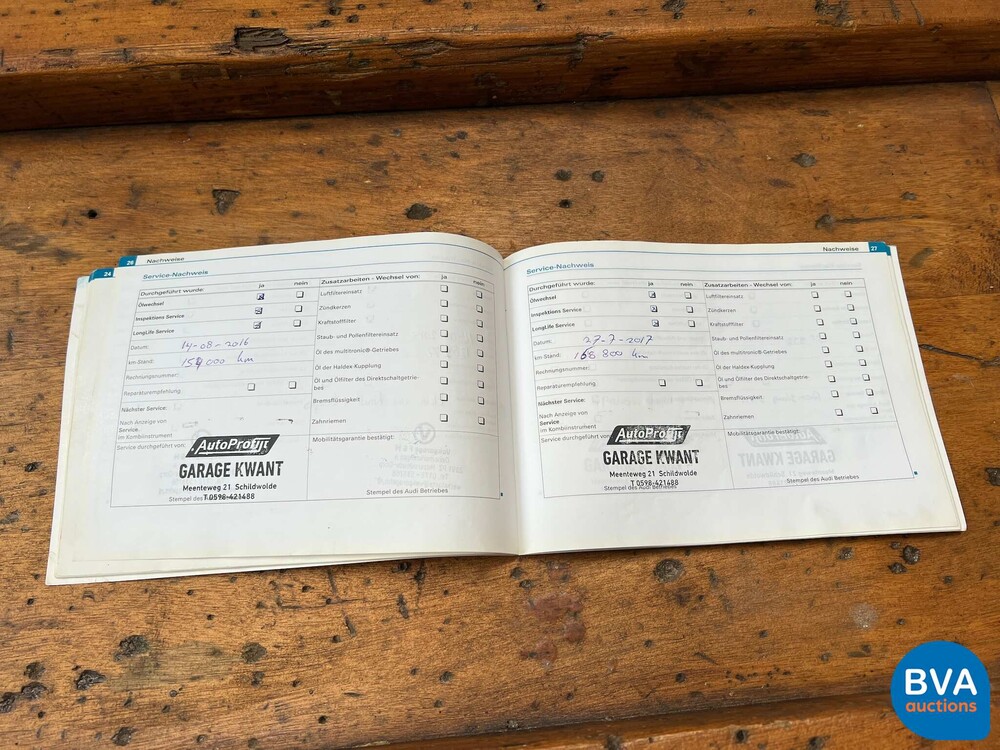 24
26 Nachweise
Service-Nachweis
Durchgeführt wurde: ja nein
Ölwechsel
Inspektions Service
LongLife Service
Datum: 14-08-2016
km-Stand: 154000 km
Rechnungsnummer:
Reparaturempfehlung:
Nächster Service:
Nach Anzeige von
Service
im Kombiinstrument
Service durchgeführt von:
AutoProfijt
GARAGE KWANT
Meenteweg 21 Schildwolde
T 0598-421488
Stempel des
Zusatzarbeiten - Wechsel von: ja nein
Luftfiltereinsatz
Zündkerzen
Kraftstofffilter
Staub- und Pollenfiltereinsatz
Öl des multitronic®-Getriebes
Öl der Haldex-Kupplung
Öl und Ölfilter des Direktschaltgetrie-
bes
Bremsflüssigkeit
Zahnriemen
Mobilitätsgarantie bestätigt:
Stempel des Audi Betriebes
Nachweise 27
Service-Nachweis
Durchgeführt wurde: ja nein
Ölwechsel
Inspektions Service
LongLife Service
Datum: 27-7-2017
km-Stand: 168 800 km
Rechnungsnummer:
Reparaturempfehlung:
Nächster Service:
Nach Anzeige von
Service
im Kombiinstrument
Service durchgeführt von:
AutoProfijt
GARAGE KWANT
Meenteweg 21 Schildwolde
T 0598-421488
Stempel des Audi Betriebes
Zusatzarbeiten - Wechsel von: ja nein
Luftfiltereinsatz
Zündkerzen
Kraftstofffilter
Staub- und Pollenfiltereinsatz
Öl des multitronic®-Getriebes
Öl der Haldex-Kupplung
Öl und Ölfilter des Direktschaltgetrie-
bes
Bremsflüssigkeit
Zahnriemen
Mobilitätsgarantie bestätigt:
GARAGE KWANT
Stempel des Audi Betriebes
BVA
auctions